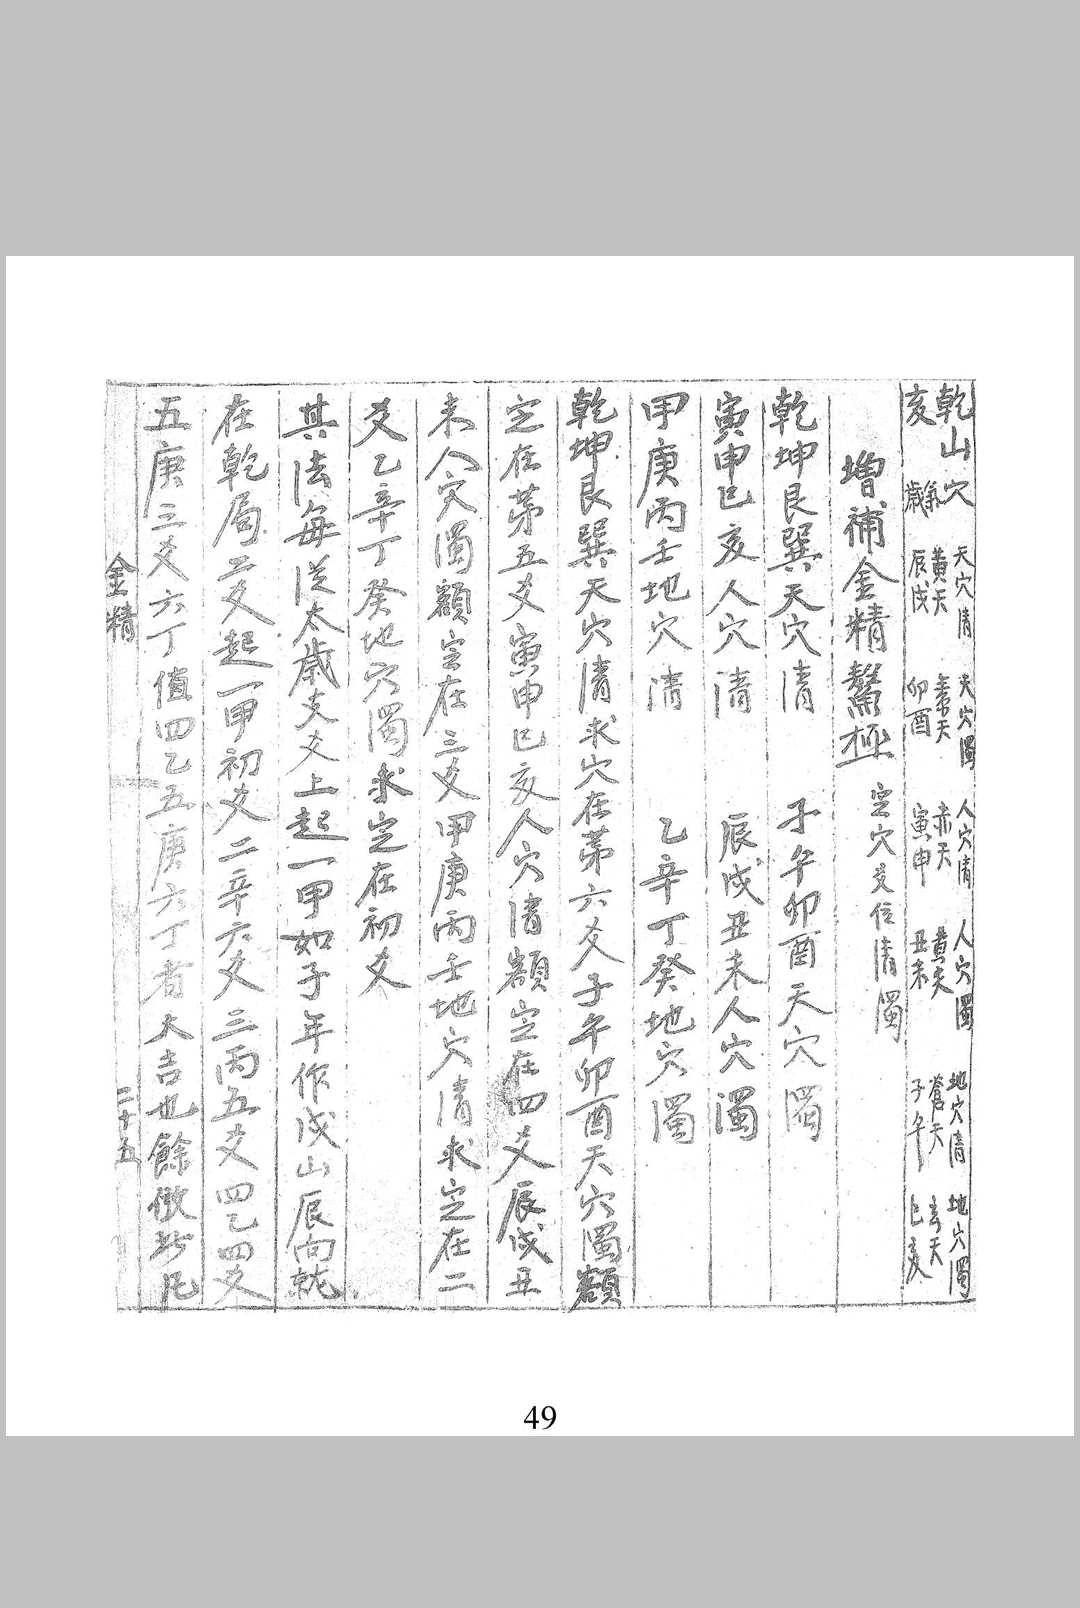 乾山穴 天穴清 天穴濁 人穴清 人穴濁 地穴清 地穴濁
黃天 素天 赤天 黃天 蒼天 玄天
亥 歲 辰戌 卯酉 寅申 丑未 子午 巳亥
增補金精鰲極 定穴爻位清濁
乾坤艮巽天穴清 子午卯酉天穴濁
寅申巳亥人穴清 辰戌丑未人穴濁
甲庚丙壬地穴清 乙辛丁癸地穴濁
乾坤艮巽天穴清求穴在苐六爻子午卯酉天穴濁額
定在苐五爻寅申巳亥人穴清額定在四爻辰戌丑
未人穴濁額定在三爻甲庚丙壬地穴清求定在二
爻乙辛丁癸地穴濁求定在初爻
其法每從太歲支爻上起一甲如子年作戌山辰向就
在乾局二爻起一甲初爻二辛六爻三丙五爻四乙四爻
五庚三爻六丁值四乙五庚六丁者大吉也餘倣此凡
金精 二十五
49